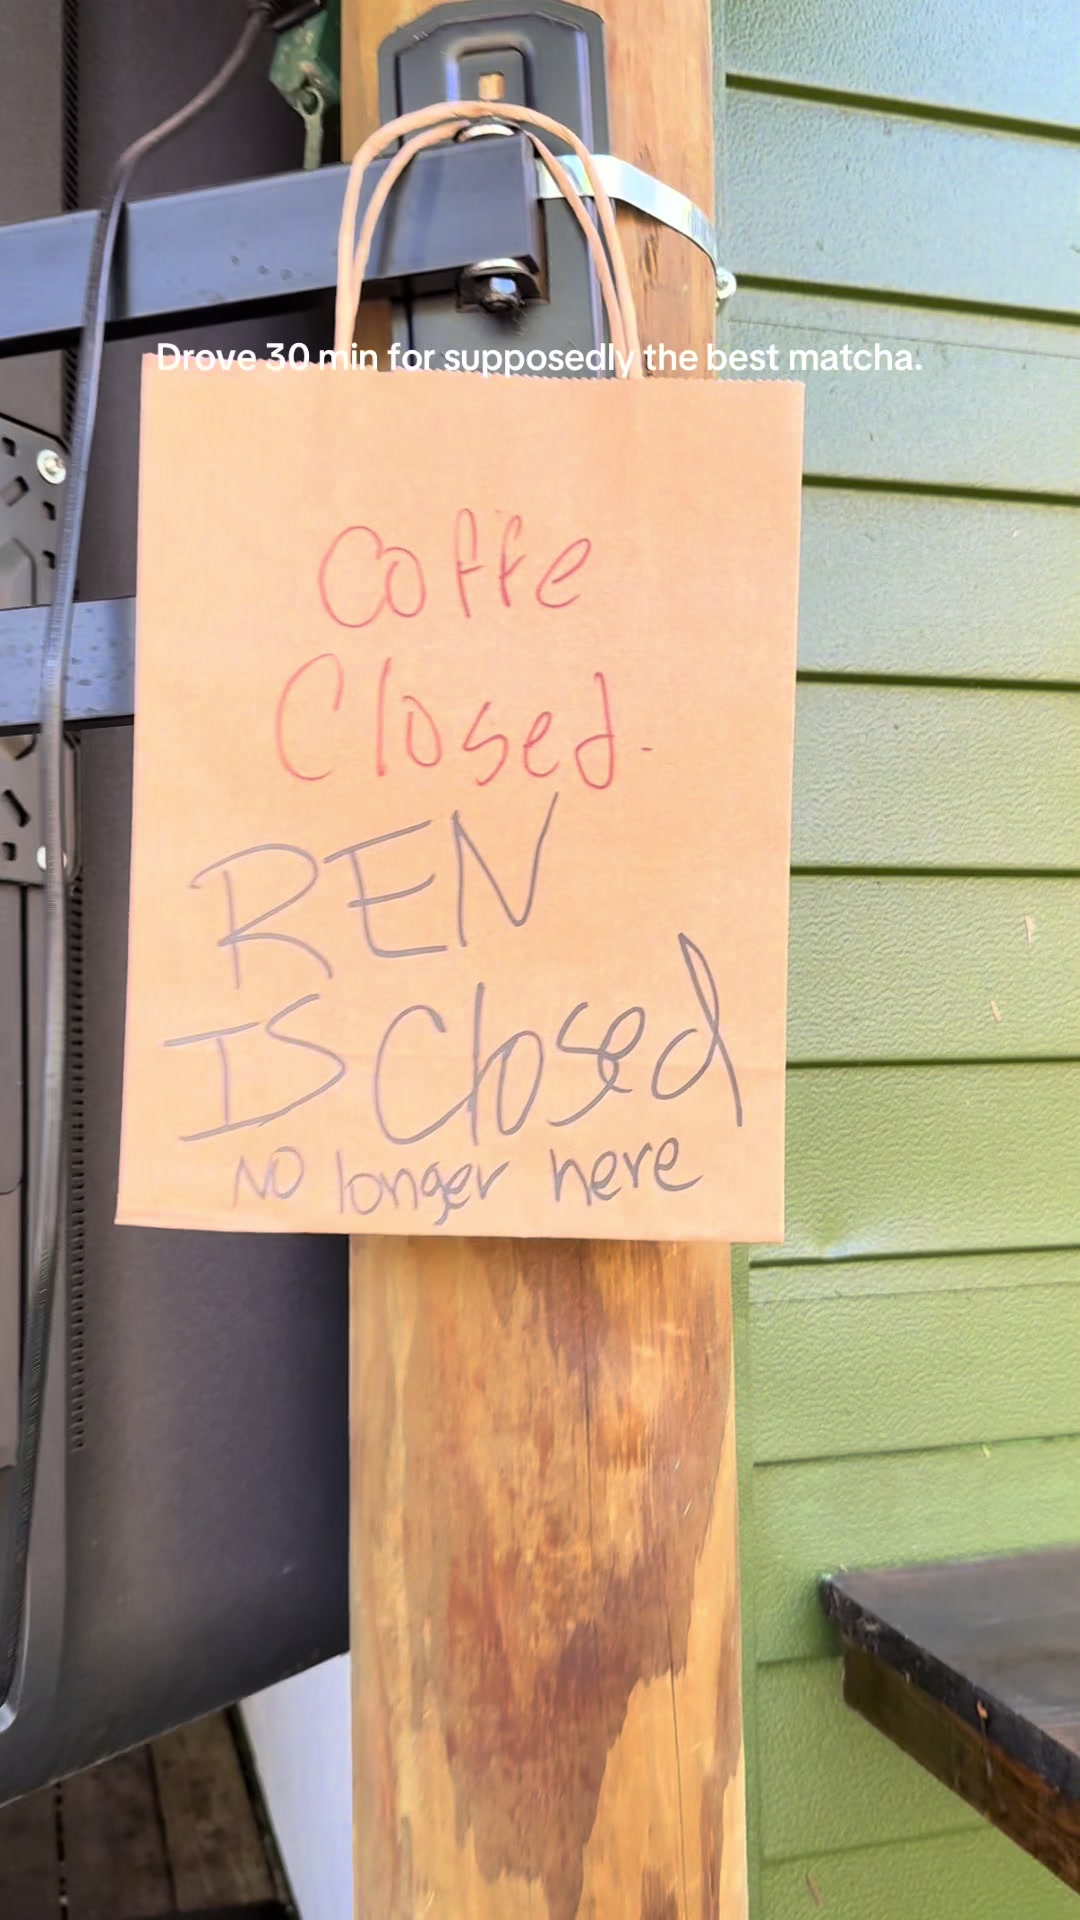 Drove 30 min for supposedly the best matcha.
Coffe
Closed.
REN
IS Closed
NO longer here